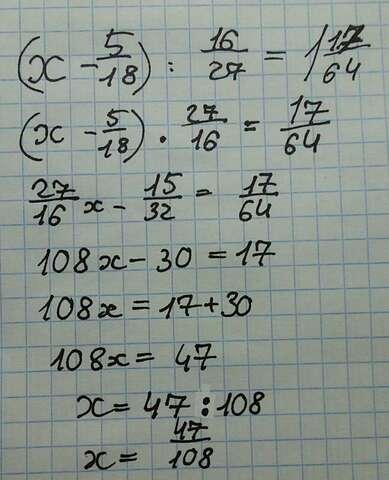 (x - 5/18) : 16/27 = 17/64
(x - 5/18) · 27/16 = 17/64
27/16 x - 15/32 = 17/64
108x - 30 = 17
108x = 17 + 30
108x = 47
x = 47 : 108
x = 47/108